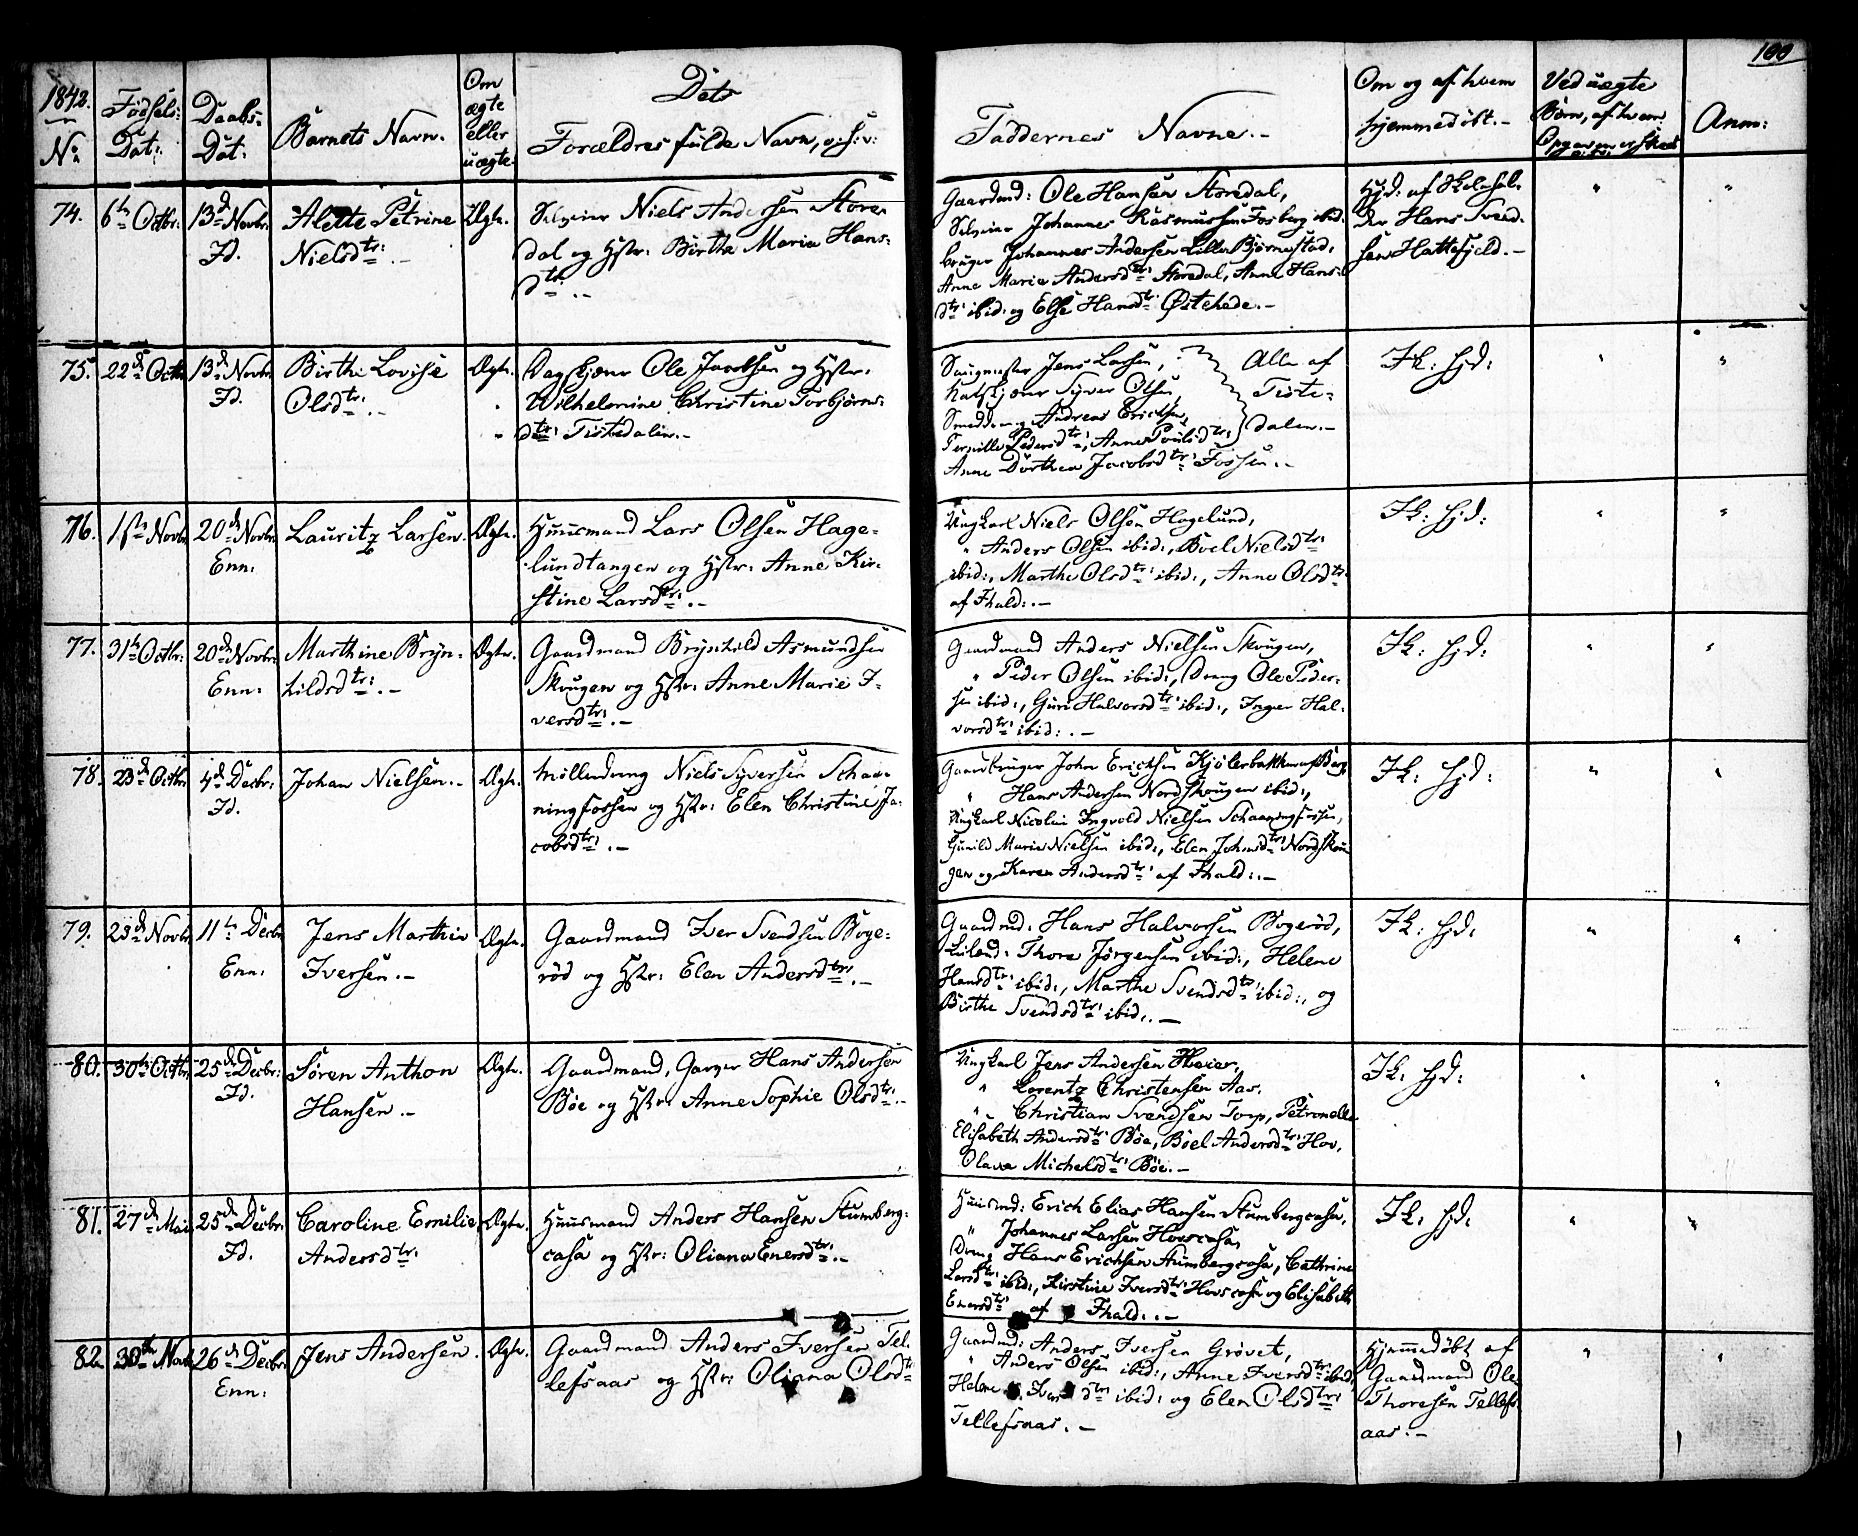 100
1842.
No
Fødsels:
Dat:
Daabs-
Dat:
Barnets Navn.
Om
ægte
eller
uægte
Dets
Forældres fulde Navn, o:s:v:
Faddernes Navne.-
Om og af hvem
hjemmedøbt.-
Ved uægte
Børn, af hvem
Opgaven er skeet
Anm:
74. 6te Octbr: 13de Novbr: Alette Petrine Ægte. Selveier Niels Andersen Store
Id. Nielsdtr:.- dal og Hstr: Birthe Maria Hans-
dtr:.-
Gaardmd: Ole Hansen Storedal,
Selveier Johannes Rasmussen Fosberg ibid:
bruger Johannes Andersen Lille Bjørnestad,
Anne Marie Andersdtr: Storedal, Anne Hans-
dtr: ibid: og Else Hansdtr: Østehede.-
Hjd: af Skolehol-
der Hans Svend-
sen Hattefjeld.-
75. 22de Octbr: 13de Novbr: Birthe Lovise Ægte. Dagskjører Ole Jacobsen og Hstr:
Id. Olsdtr:.- Wilhelmine Christine Torbjørns-
dtr: Tistedalen.-
Saugmester Jens Larsen, Alle af
Syver Olsen, Tiste-
Smeddreng Andreas Erichsen, dalen.-
Pernille Pedersdtr:, Anne Poulsdtr:
Anne Dorthea Jacobsdtr: Fossen.-
Ik: hjd:
76. 1ste Novbr: 20de Novbr: Lauritz Larsen. Ægte. Huusmand Lars Olsen Hage-
Enn: lundtangen og Hstr: Anne Kir-
stine Larsdtr:.-
Ungkarl Niels Olsen Hagelund,
" Anders Olsen ibid:, Boel Nielsdtr:
ibid:, Marthe Olsdtr: ibid:, Anne Olsdtr:
af Fhald:.-
Ik: hjd:
77. 31te Octbr: 20de Novbr: Marthine Bryn- Ægte. Gaardmand Brynhild Asmundsen
Enn: hildsdtr:.- Skougen og Hstr: Anne Marie I-
versdtr:.-
Gaardmand Anders Nielsen Skougen,
" Peder Olsen ibid:, Dreng Ole Peder-
sen ibid:, Guri Halvorsdtr: ibid:, Inger Hal-
vorsdtr: ibid:.-
Ik: hjd:
78. 23de Octbr: 4de Decbr: Johan Nielsen.- Ægte. Mølledreng Niels Syversen Schaa-
Id. ningfossen og Hstr: Elen Christine Ja-
cobsdtr:.-
Gaardbruger John Erichsen Kjølerbakken af Berg,
" Hans Andersen Nordskougen ibid:,
Ungkarl Nicolai Ingvold Nielsen Schaaningfossen,
Gunild Marie Nielsen ibid:, Elen Johnsdtr: Nordskou-
gen og Karen Andersdtr: af Fhald:.-
Ik: hjd:
79. 23de Novbr: 11te Decbr: Jens Marthin Ægte. Gaardmand Iver Svendsen Boge-
Enn: Iversen.- rød og Hstr: Elen Andersdtr:.-
Gaardmd: Hans Halvorsen Bogerød,
Thore Jørgensen ibid:, Helene
Hansdtr: ibid:, Marthe Svendsdtr: ibid:, og
Birthe Svendsdtr: ibid:.-
Ik: hjd:
80. 30te Octbr: 25de Decbr: Søren Anthon Ægte. Gaardmand, Garver Hans Andersen
Id. Hansen.- Bøe og Hstr: Anne Sophie Olsdtr:.-
Ungkarl Jens Andersen
" Lorentz Christensen Aas.
" Christian Svendsen Torp, Petronelle
Elisabeth Andersdtr: Bøe, Boel Andersdtr: Hov,
Olava Michelsdtr: Bøe.-
Ik: hjd:
81. 27de Mai 25de Decbr: Caroline Emilie Ægte. Huusmand Anders Hansen Stumberg-
Id. Andersdtr: casa og Hstr: Oliana Enersdtr:.-
Huusmd: Erich Elias Hansen Stumbergcasa,
" Johannes Larsen Hovscasa,
Dreng Hans Erichsen Stumbergcasa, Cathrine
Larsdtr: ibid:, Kirstine Iversdtr: Hovscasa og Elisabeth
Enersdtr: af Fhald:.-
Ik: hjd:
82. 30te Novbr 26de Decbr: Jens Andersen. Ægte. Gaardmand Anders Iversen Tel-
Enn: lefsaas og Hstr: Oliana Olsdtr:
Gaardmd: Anders Iversen Grøvet,
" Anders Olsen ibid:, Anne Iversdtr: ibid:,
Helene Iversdtr: ibid: og Elen Olsdtr:
Tellefsaas.-
Hjemmedøbt af
Gaardmand Ole
Thoresen Tellefs-
aas.-